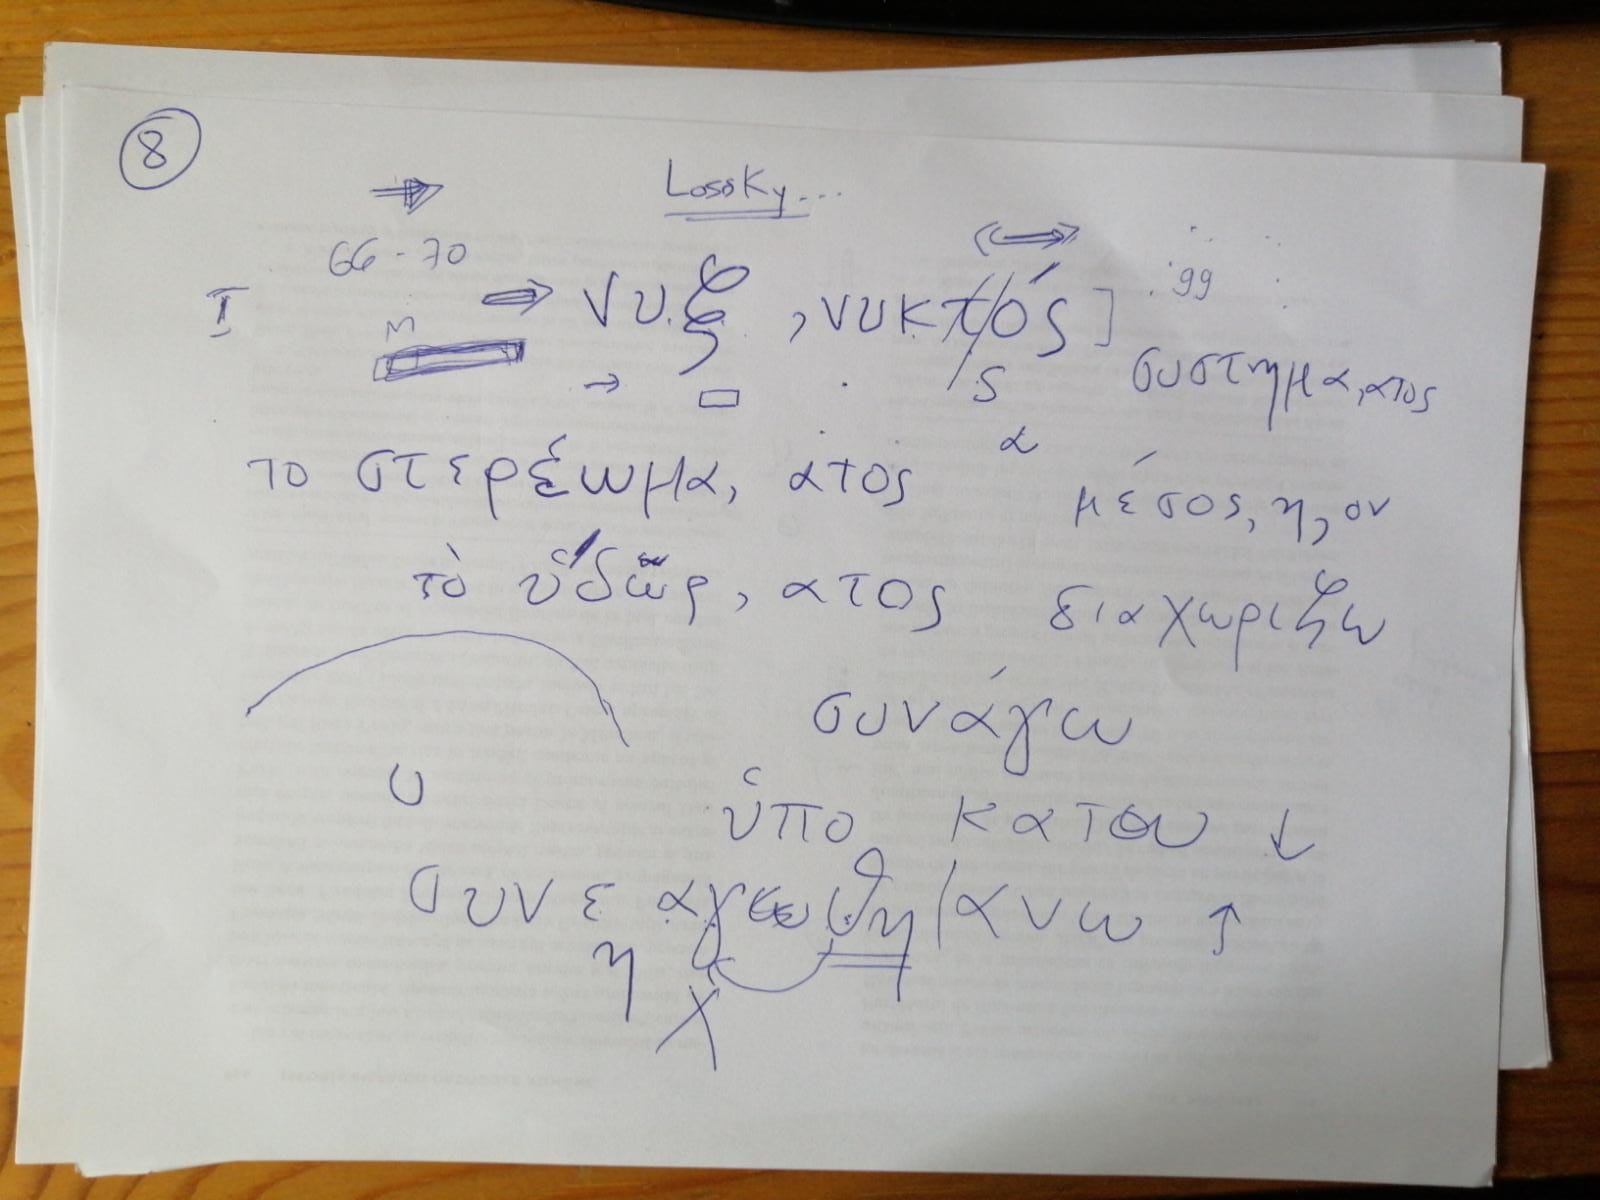 8
Lossky...
66-70
I νυξ, νυκτός] gg
ς συστημα, ατος
το στερέωμα, ατος α μέσος, η, ον
τὸ ὕδωρ, ατος διαχωριζω
συνάγω
υ ὑπο κατω ↓
συνε αγ θη / ανω ↑
η χ